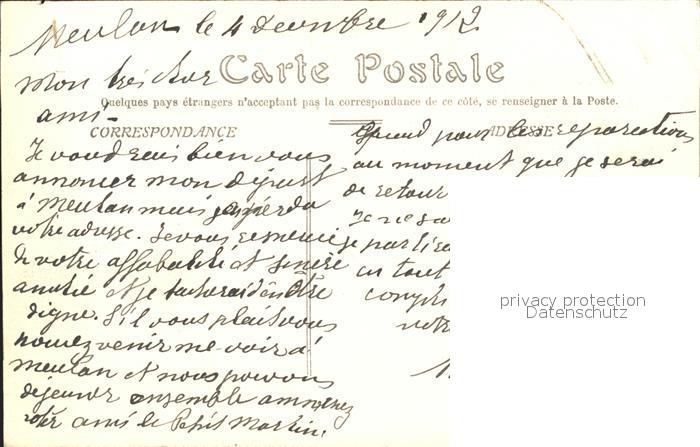 Meulan le 4 decembre 1912
Mon très cher
ami -
Carte Postale
Quelques pays étrangers n'acceptant pas la correspondance de ce côté, se renseigner à la Poste.
CORRESPONDANCE
Je voudrais bien vous
annoncer mon départ
à Meulan mais j'ai perdu
votre adresse. Je vous remercie
de votre affabilité et sincère
amitié et je tacherai d'en être
digne. S'il vous plait vous
pouvez venir me voir à
meulan et nous pouvons
dejeuner ensemble amenez
votre ami le Petit Martin.
ADRESSE
Quand pour les reparations
au moment que je serai
de retour
Je ne
je partirai
en tout
votre
privacy protection
Datenschutz